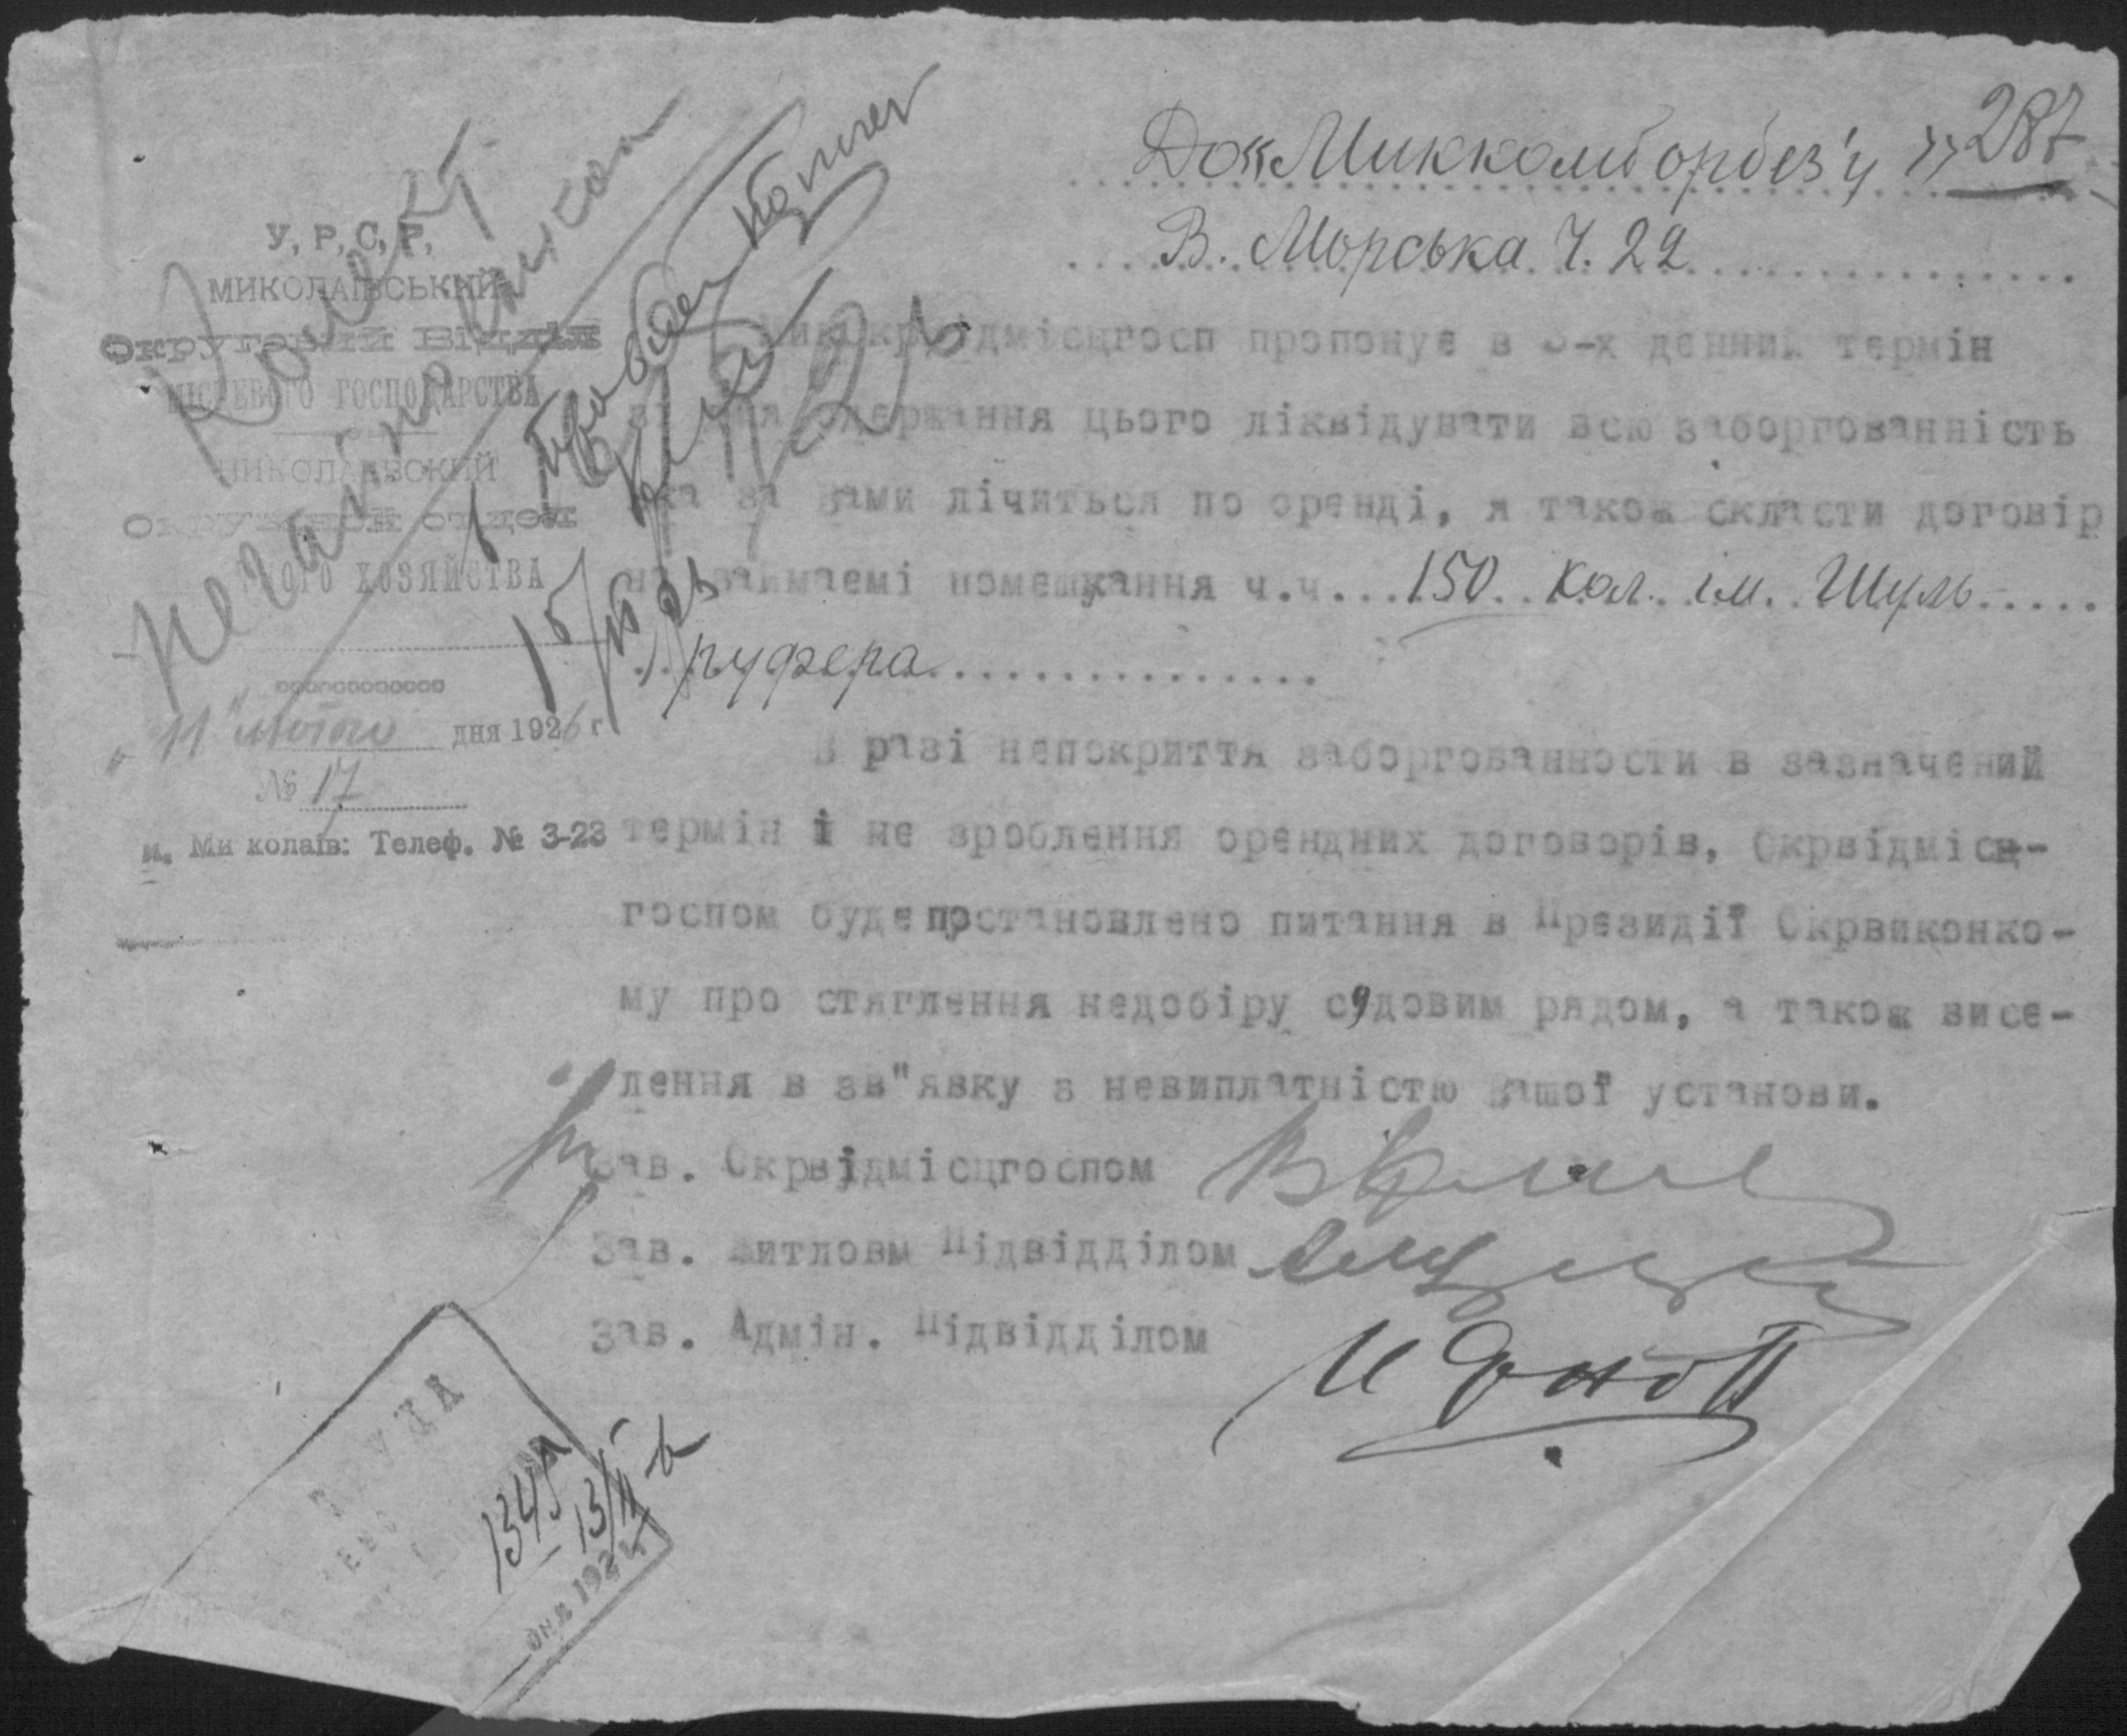 До "Миккомборбез'у" 287
В. Морська Ч. 22
У, Р, С, Р,
МИКОЛАЇВСЬКИЙ
Округовий Відділ
МІСЦЕВОГО ГОСПОДАРСТВА
НИКОЛАЕВСКИЙ
Окружной отдел
ХОЗЯЙСТВА
"11" лютого дня 1926 г
№ 17
м. Миколаїв: Телеф. № 3-23
пропонує в 3-х денний термін
одержання цього ліквідувати всю заборгованність
яка за Вами лічиться по оренді, я також скласти договір
на займаемі помешкання ч.ч. 150 кол. ім. Шуль-
груфера
В разі непокриття заборгованности в зазначений
термін і не зроблення орендних договорів, Окрвідмісц-
госпом буде постановлено питання в Президії Окрвиконко-
му про стяглення недобіру судовим рядом, а також висе-
лення в зв"явку з невиплатністю Вашої установи.
Зав. Окрвідмісцгоспом
Зав. Житловм Підвідділом
Зав. Адмін. Підвідділом
негайно
15/II 26
ТРУДА
1345
13/II
дня 192